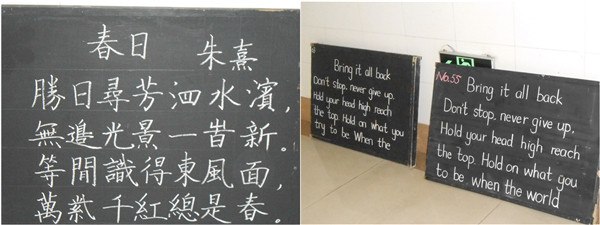 春日 朱熹
勝日尋芳泗水濱,
無邊光景一旹新。
等閒識得東風面,
萬紫千紅總是春。
Bring it all back
Don't stop. never give up.
Hold your head high reach
the top. Hold on what you
try to be. When the
No.55
Bring it all back
Don't stop. never give up.
Hold your head high reach
the top. Hold on what you
to be. when the world